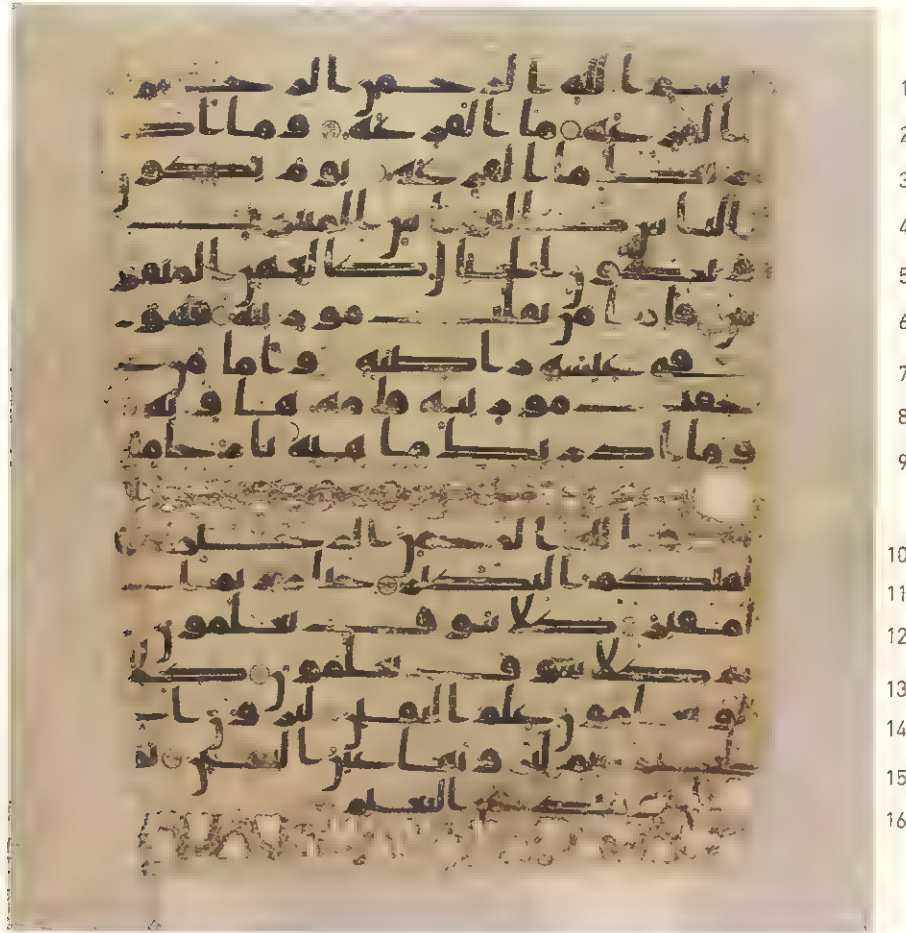 1 بسم الله الرحمن الرحيم
2 القرعة ما القرعة وما اد
3 ريك ما القرعة يوم يكون
4 الناس كالفراش المبثو
5 ث وتكون الجبال كالعهن المنفو
6 ش فاما من ثقلت موزينه فهو
7 في عيشة راضية واما من
8 خفت موزينه فامه هاوية
9 وما ادريك ما هيه نار حامية
10 بسم الله الرحمن الرحيم
11 الهيكم التكثر حتى زرتم
12 المقبر كلا سوف تعلمون
13 ثم كلا سوف تعلمون كلا
14 لو تعلمون علم اليقين لترون ا
15 لجحيم ثم لترونها عين اليقين ثم
16 لتسلن يومئذ عن النعيم